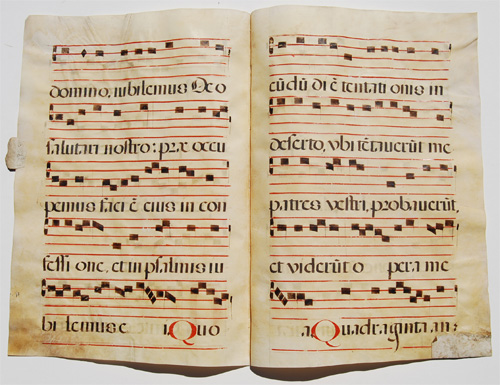 domino, iubilemus Deo
salutari nostro: præ occu
pemus faci ē eius in con
fessi one, et in psalmis iu
bi lemus e i. Quo
cūdū di ē tentati onis in
deserto, vbi tētauerūt me
patres vestri, probauerūt,
et viderūt o pera me
a. Quadraginta an: